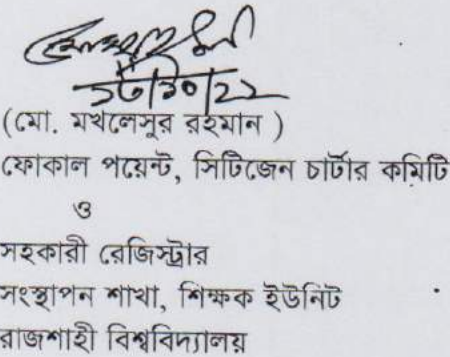 (মো. মখলেসুর রহমান )
ফোকাল পয়েন্ট, সিটিজেন চার্টার কমিটি
ও
সহকারী রেজিস্ট্রার
সংস্থাপন শাখা, শিক্ষক ইউনিট
রাজশাহী বিশ্ববিদ্যালয়